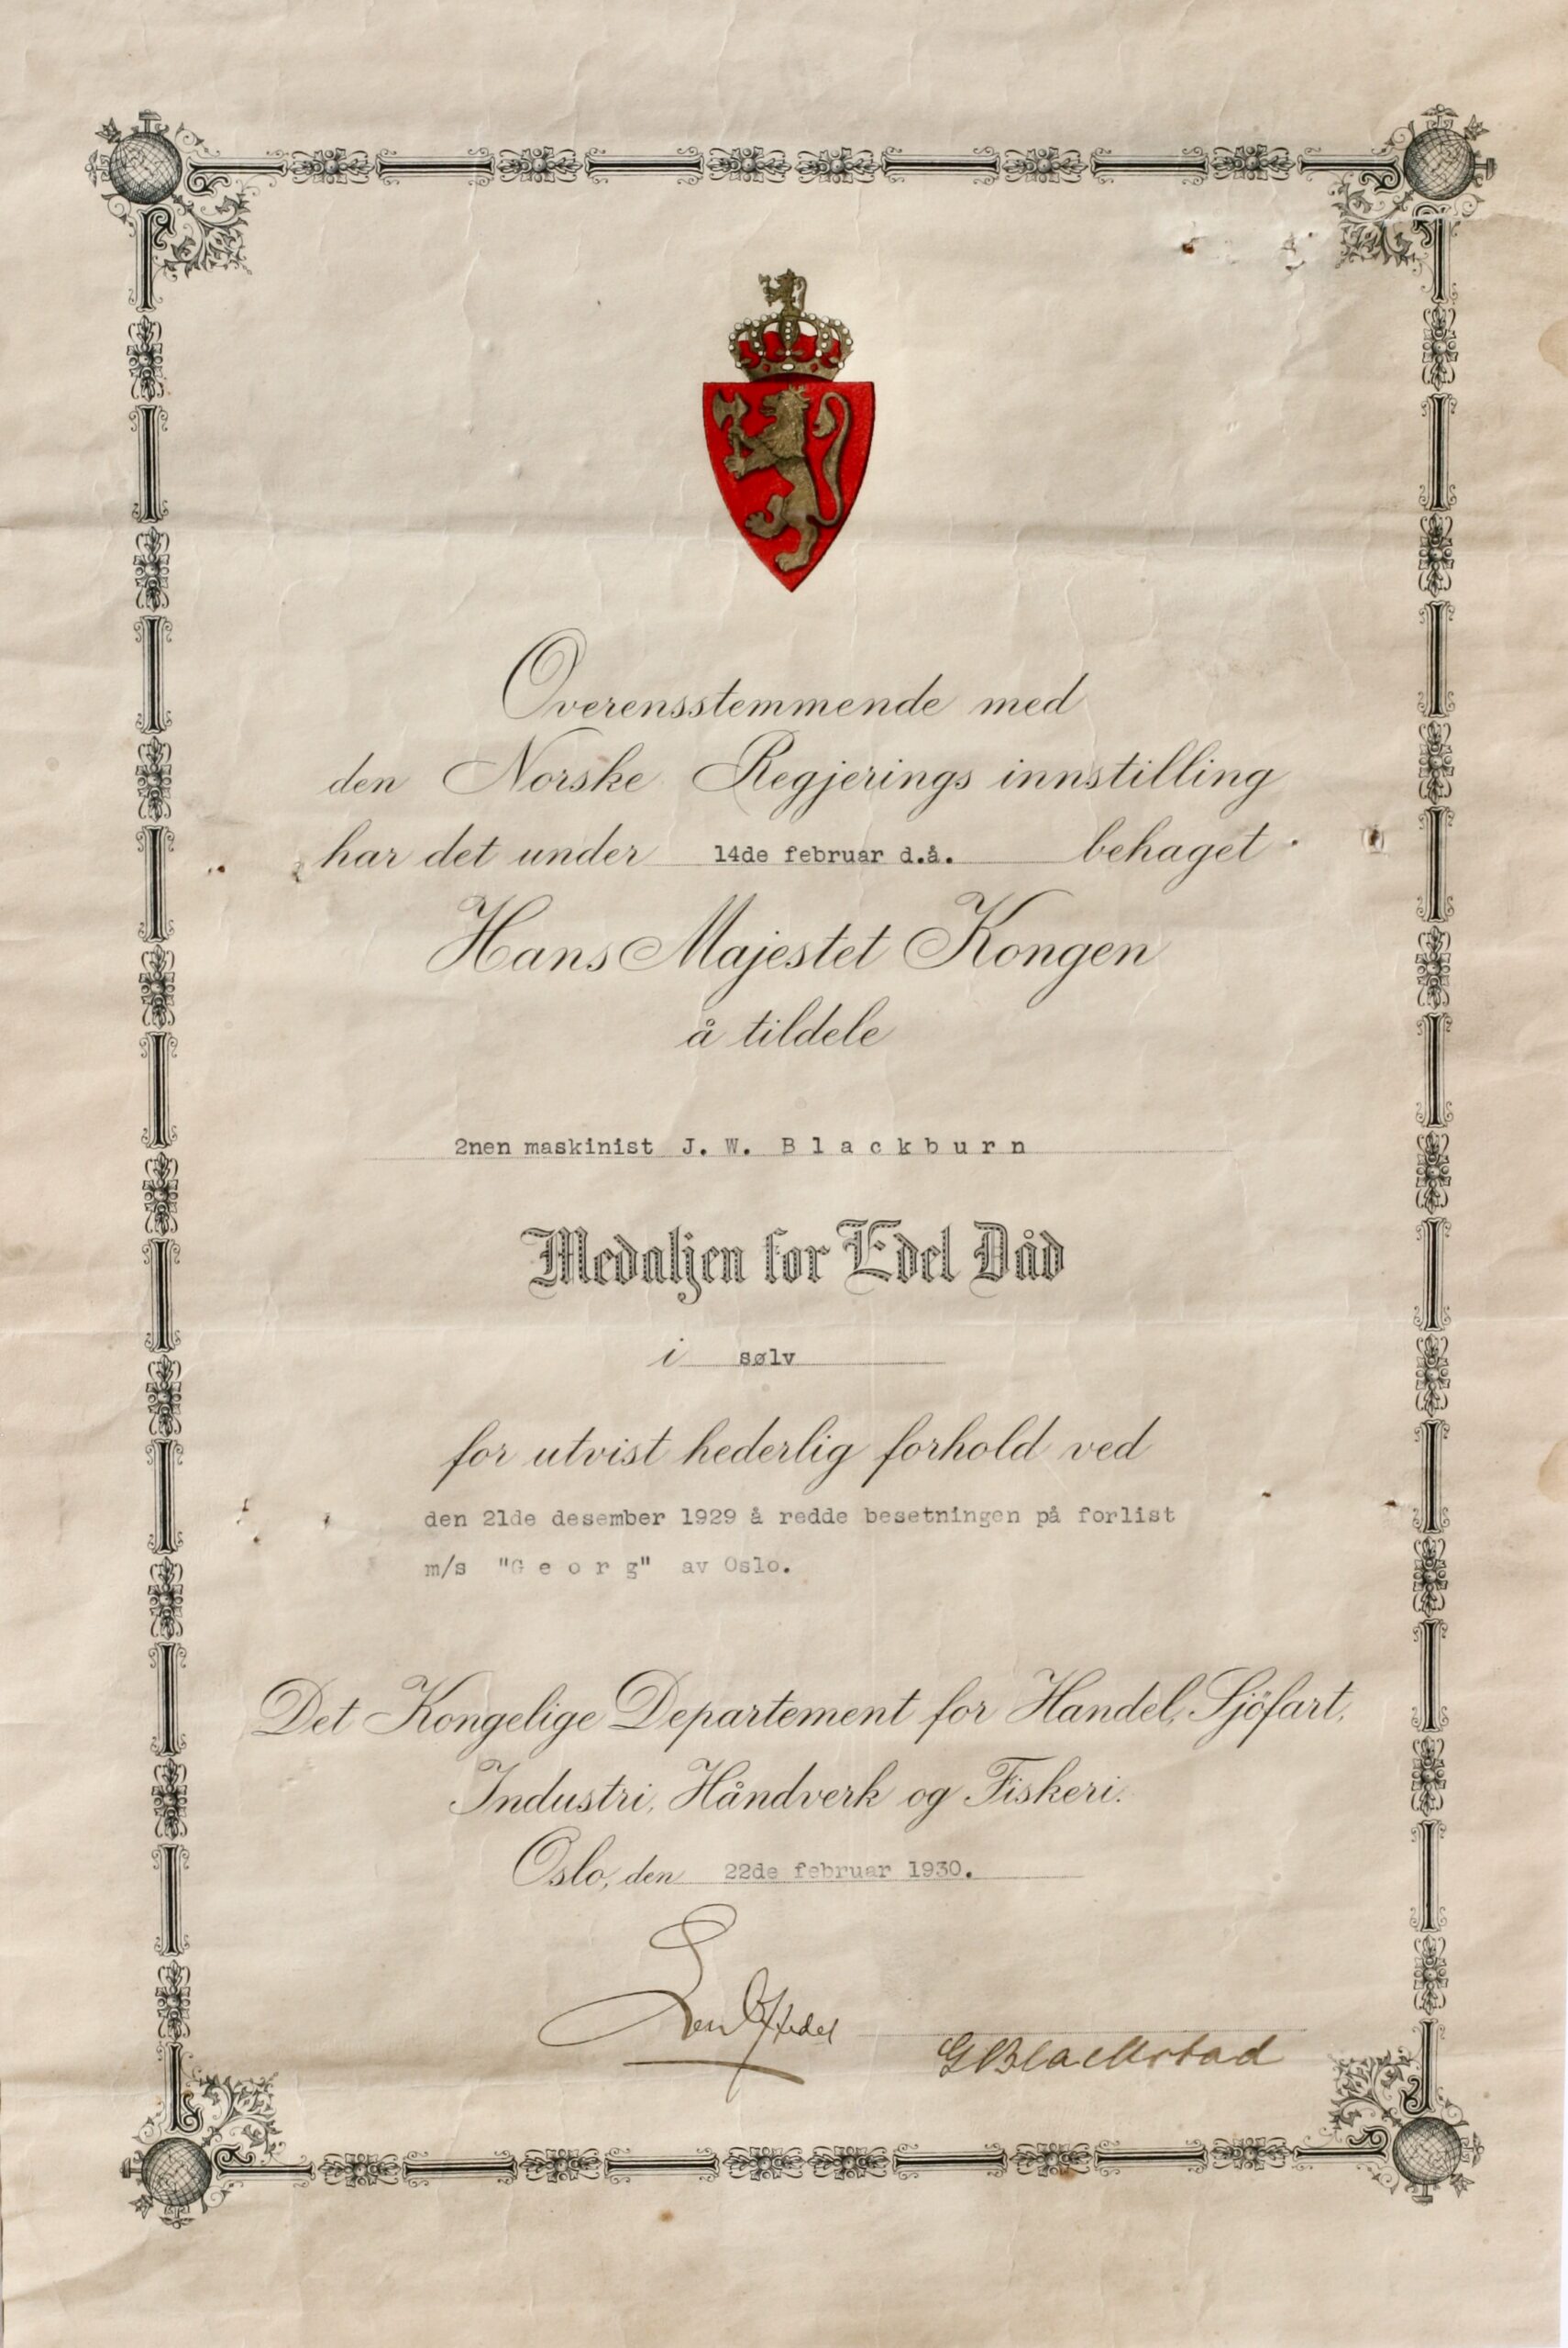 Overensstemmende med
den Norske Regjerings innstilling
har det under 14de februar d.å. behaget
Hans Majestet Kongen
å tildele
2nen maskinist J. W. Blackburn
Medaljen for Edel Dåd
i sølv
for utvist hederlig forhold ved
den 21de desember 1929 å redde besetningen på forlist
m/s "Georg" av Oslo.
Det Kongelige Departement for Handel, Sjöfart,
Industri, Håndverk og Fiskeri.
Oslo, den 22de februar 1930.
G Blackstad